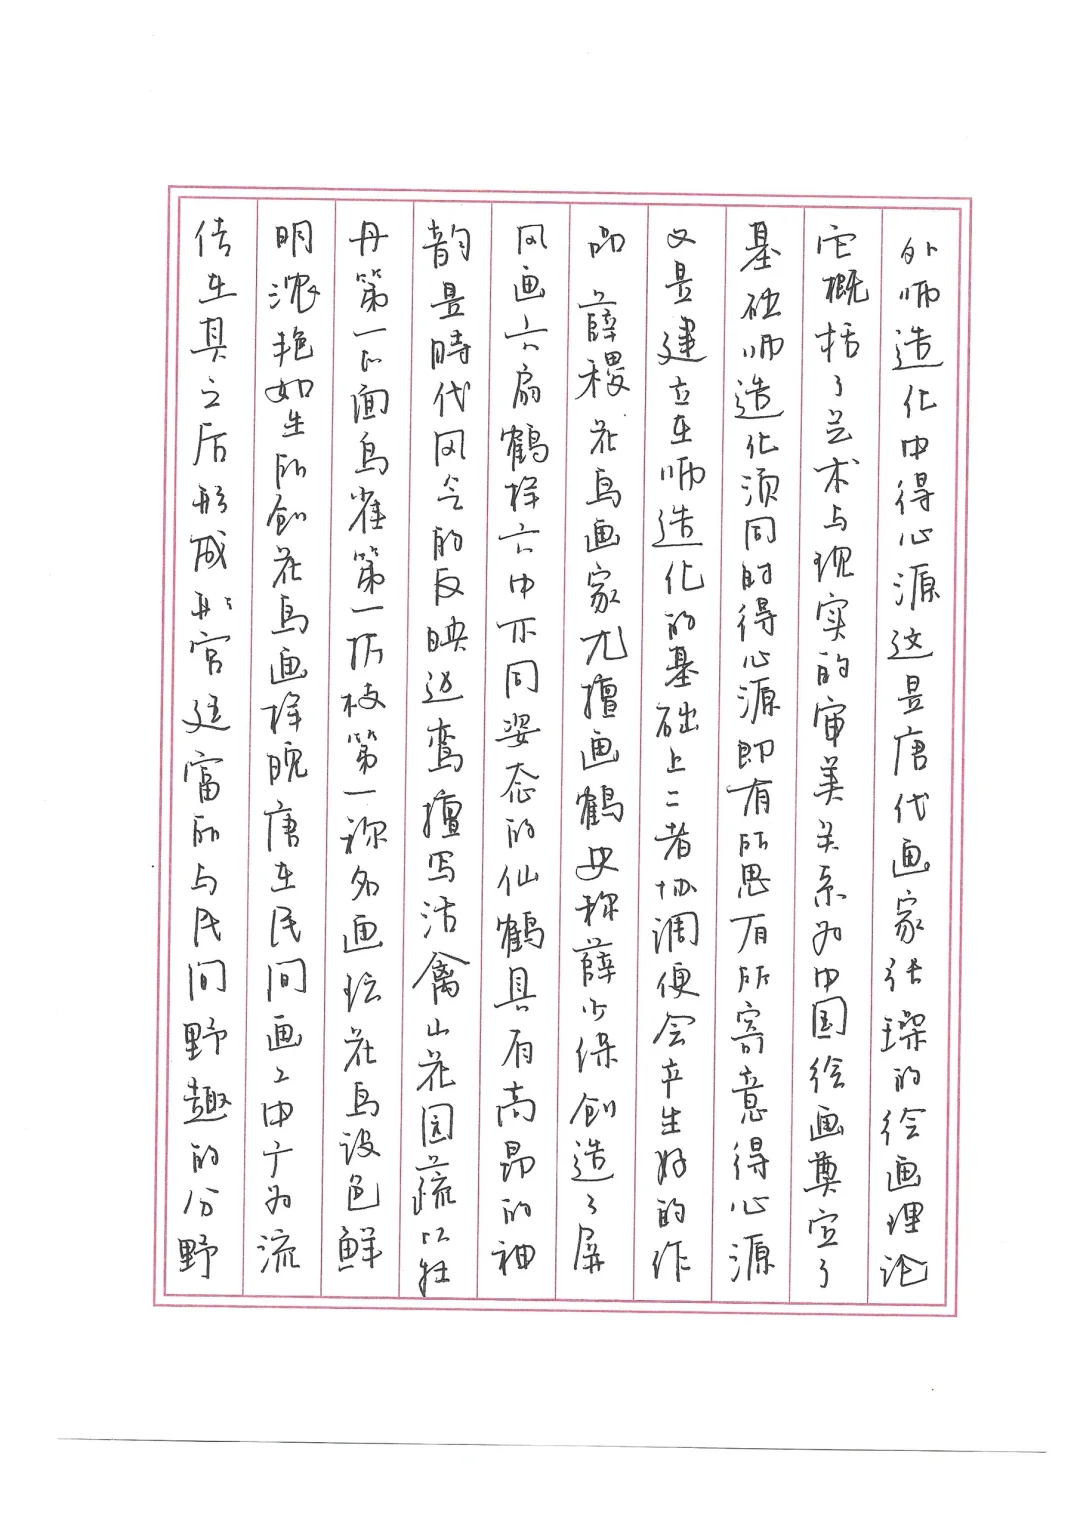 外师造化中得心源这是唐代画家张璪的绘画理论
它概括了艺术与现实的审美关系为中国绘画奠定了
基础师造化须同时得心源即有所思有所寄意得心源
又是建立在师造化的基础上二者协调便会产生好的作
品 薛稷花鸟画家尤擅画鹤史称薛少保创造了屏
风画六扇鹤样六中不同姿态的仙鹤具有高昂的神
韵是時代风气的反映边鸾擅写活禽山花园蔬以牡
丹第一下面鸟雀第一折枝第一称名画坛花鸟设色鲜
明浓艳如生所创花鸟画样晚唐在民间画工中广为流
传在其之后形成于宫廷富丽与民间野趣的分野